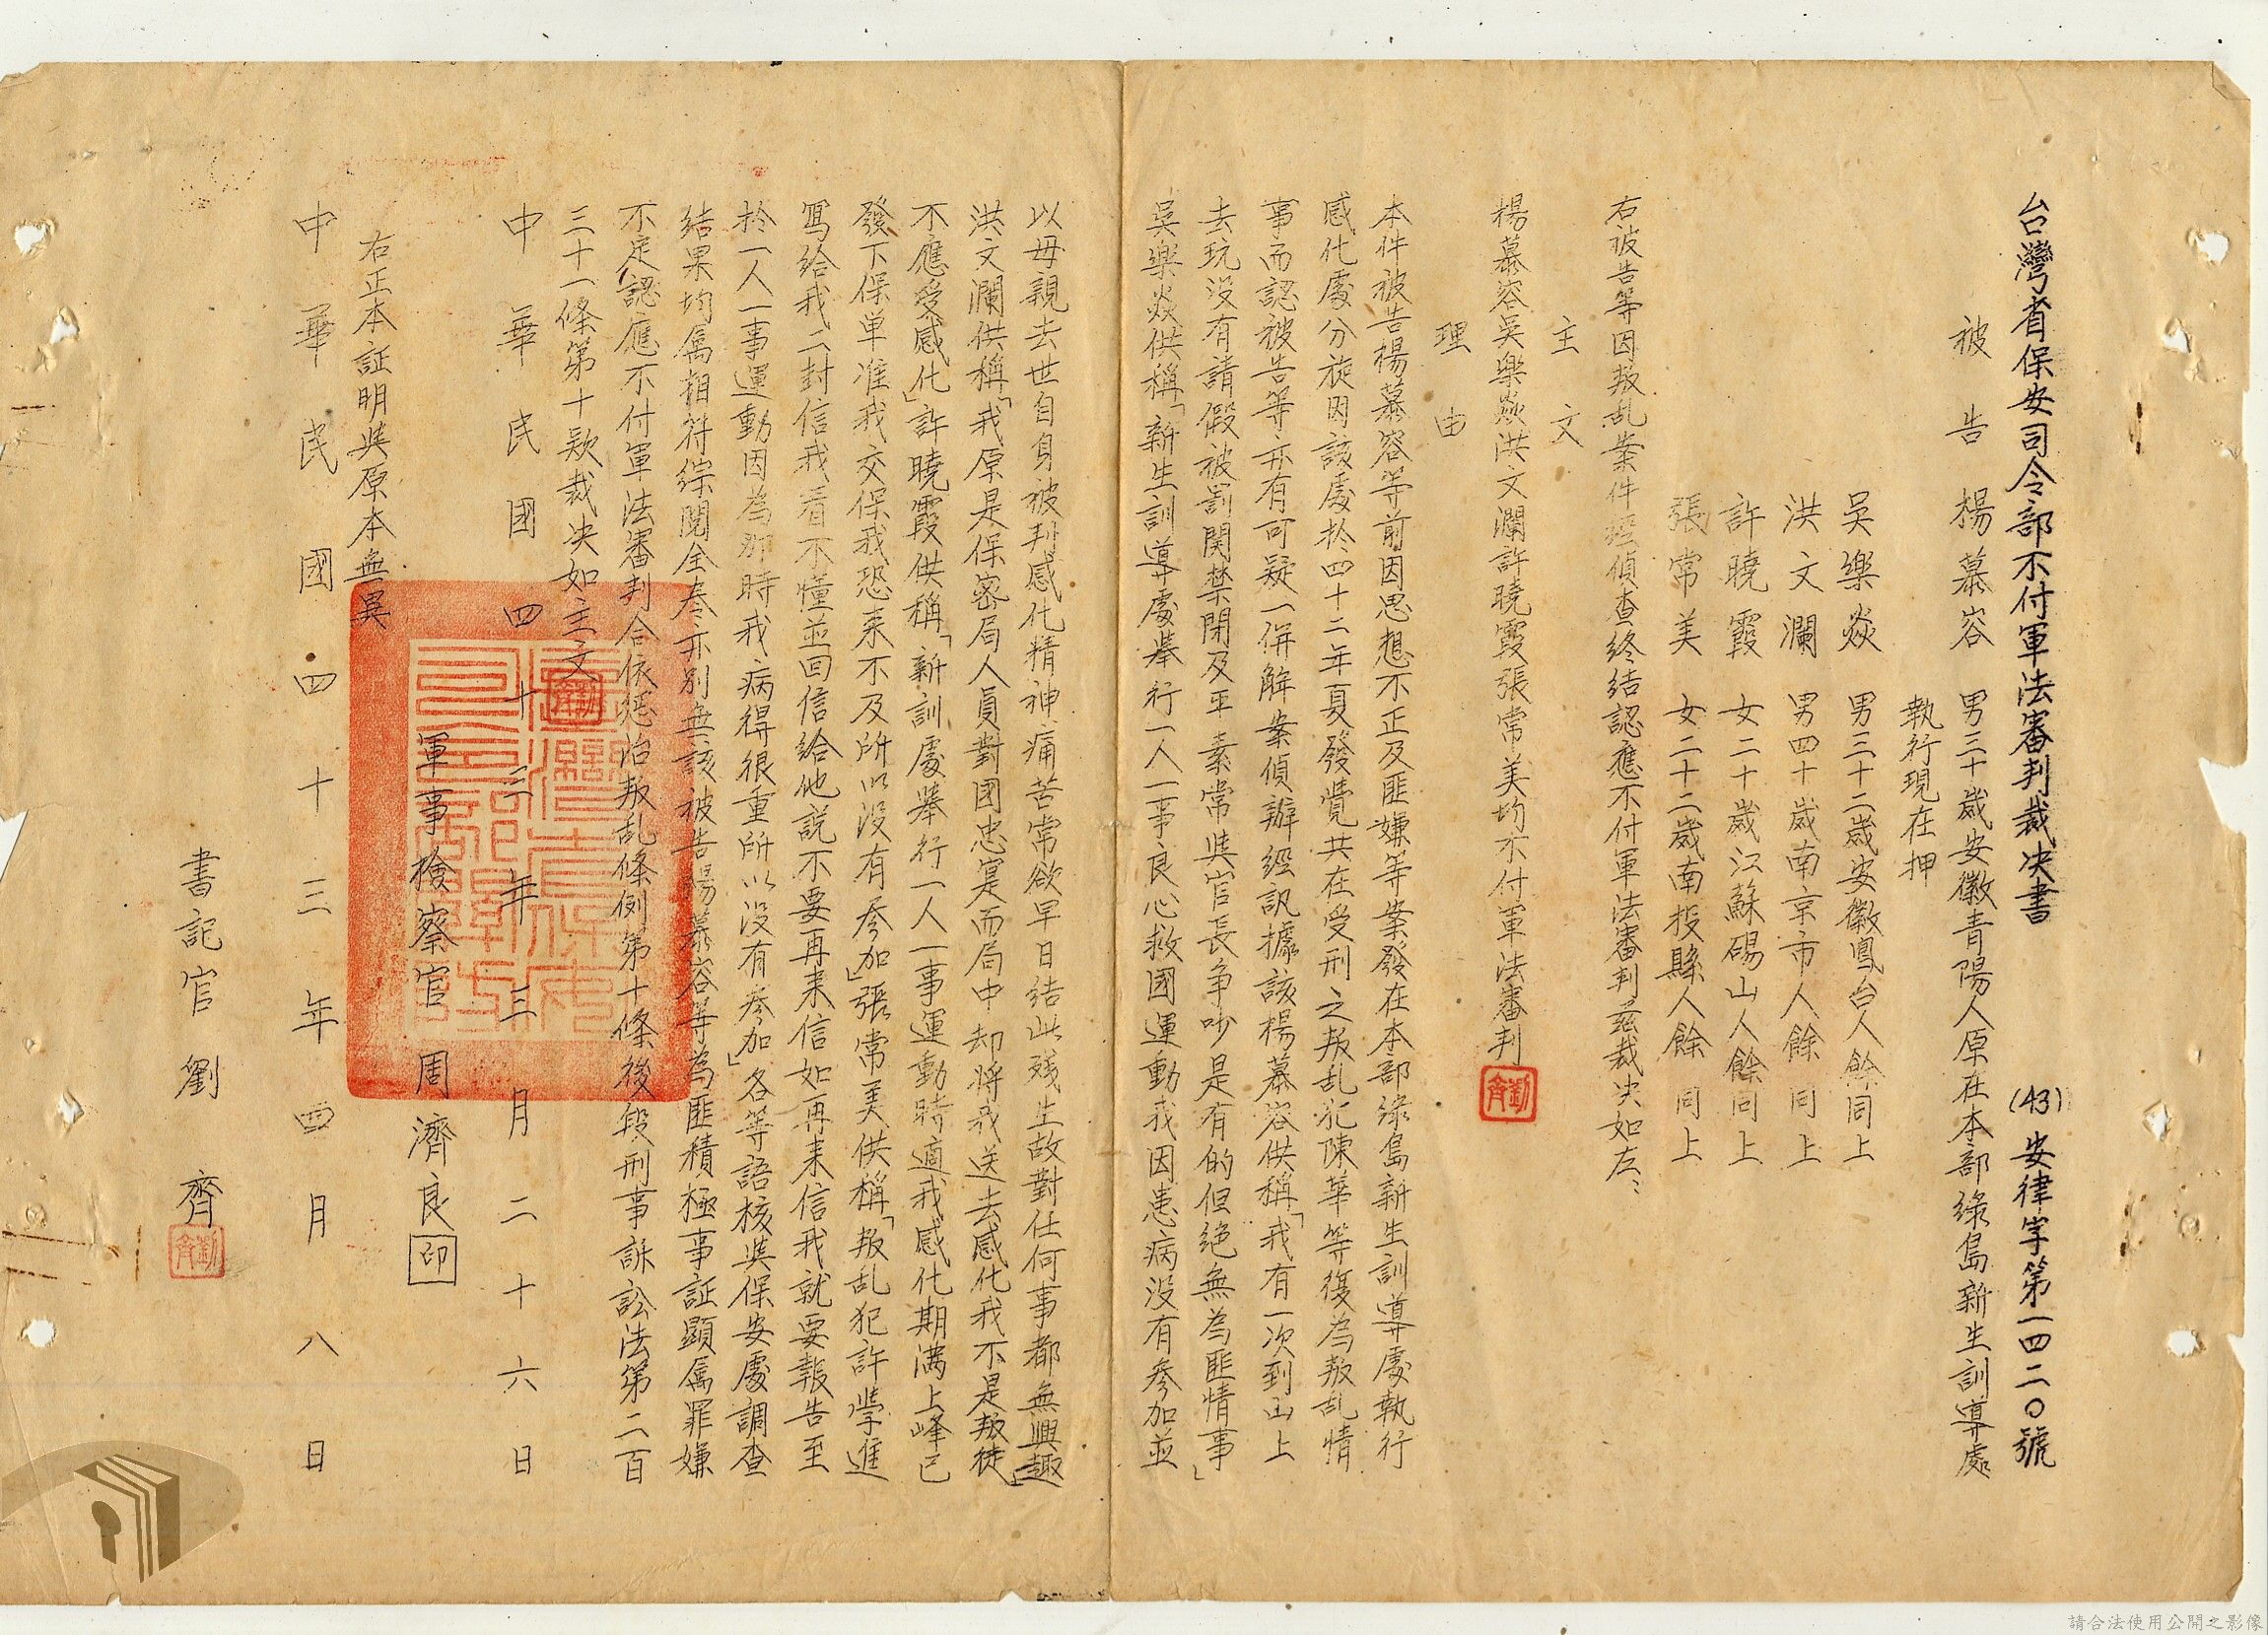 台灣省保安司令部不付軍法審判裁決書 (43)安律字第一四二〇號
被告 楊慕容 男三十歲安徽青陽人原在本部綠島新生訓導處
執行現在押
吳樂焱 男三十二歲安徽鳳台人餘同上
洪文瀾 男四十歲南京市人餘同上
許曉霞 女二十歲江蘇碭山人餘同上
張常美 女二十二歲南投縣人餘同上
右被告等因叛乱案件經偵查終結認應不付軍法審判茲裁決如左：
主文
楊慕容吳樂焱洪文瀾許曉霞張常美均不付軍法審判
理由
本件被告楊慕容等前因思想不正及匪嫌等案發在本部綠島新生訓導處執行
感化處分旋因該處於四十二年夏發覺共在受刑之叛乱犯陳華等復為叛乱情
事而認被告等亦有可疑一併解案偵辦經訊據該楊慕容供稱「我有一次到山上
去玩没有請假被罰関禁閉及平素常與官長争吵是有的但绝無為匪情事」
吳樂焱供稱「新生訓導處舉行一人一事良心救國運動我因患病没有參加並
以母親去世自身被判感化精神痛苦常欲早日结此残生故對任何事都無興趣」
洪文瀾供稱「我原是保密局人員對國忠寔而局中却将我送去感化我不是叛徒
不應受感化」許曉霞供稱「新訓處舉行一人一事運動時適我感化期满上峰已
發下保单准我交保我恐来不及所以没有參加」張常美供稱「叛乱犯許學進
寫给我二封信我看不懂並回信给他説不要再来信如再来信我就要報告至
於一人一事運動因為那時我病得很重所以没有參加」各等語核與保安處調查
结果均属相符綜閱全卷亦别無該被告楊慕容等為匪積極事証顯属罪嫌
不足認應不付軍法審判合依惩治叛乱條例第十條後段刑事訴訟法第二百
三十一條第十款裁決如主文
中華民國四十三年三月二十六日
軍事檢察官 周濟良 印
右正本証明與原本無異
中華民國四十三年四月八日
書記官 劉齊
劉齊
請合法使用公開之影像